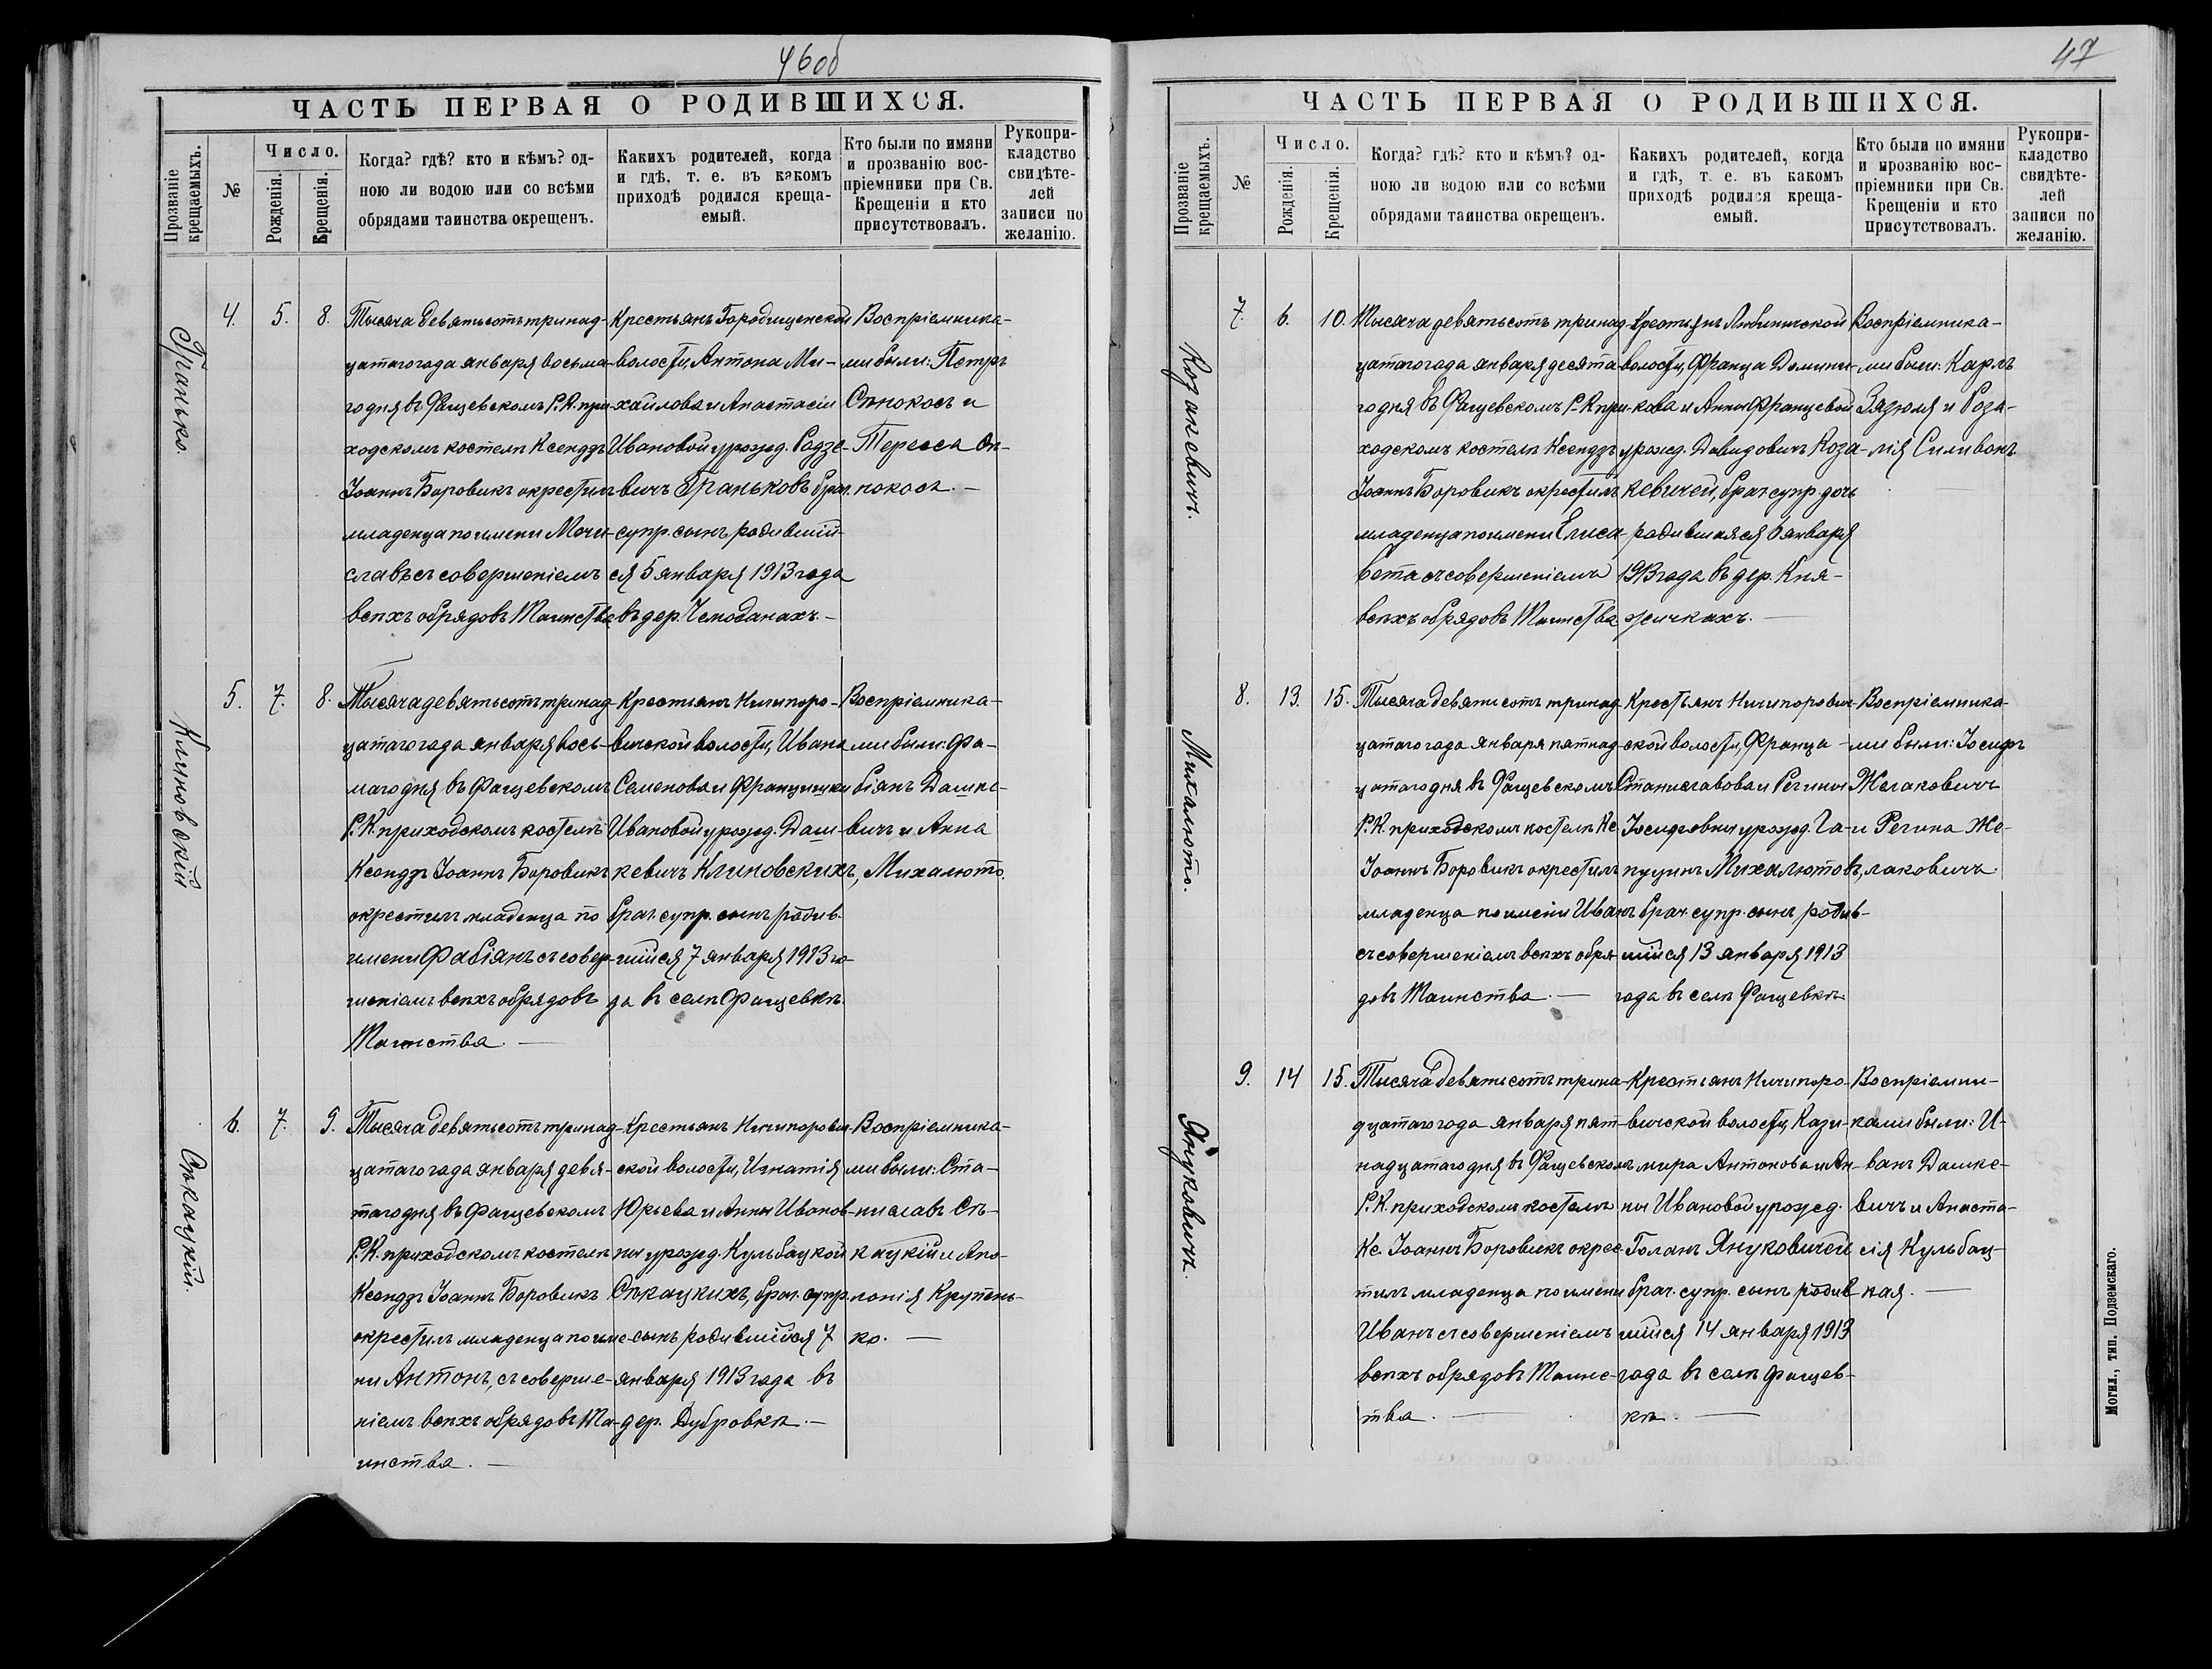 46об
ЧАСТЬ ПЕРВАЯ О РОДИВШИХСЯ.
Прозваніе крещаемыхъ.
№
Число.
Рожденія.
Крещенія.
Когда? гдѣ? кто и кѣмъ? од-
ною ли водою или со всѣми
обрядами таинства окрещенъ.
Какихъ родителей, когда
и гдѣ, т. е. въ какомъ
приходѣ родился креща-
емый.
Кто были по имяни
и прозванію вос-
пріемники при Св.
Крещеніи и кто
присутствовалъ.
Рукопри-
кладство
свидѣте-
лей
записи по
желанію.
Гранько.
4. 5. 8.
Тысяча девятьсотъ тринад-
цатаго года января восьма-
го дня въ Фащевскомъ Р. К. при-
ходскомъ костелѣ Ксендзъ
Іоаннъ Боровикъ окрестилъ
младенца по имени Мечи-
славъ съ совершеніемъ
всѣхъ обрядовъ Таинства
Крестьянъ Городищенской
волости, Антона Ми-
хайлова и Анастасіи
Ивановой урожд. Радзе-
вичъ Граньковъ брач.
супр. сынъ родившій-
ся 5 января 1913 года
въ дер. Чемоданахъ.-
Воспріемника-
ми были: Петръ
Сѣнокосъ и
Тересса Сѣ-
нокосъ.-
Клиновскій
5. 7. 8.
Тысяча девятьсотъ тринад-
цатаго года января вось-
маго дня въ Фащевскомъ
Р. К. приходскомъ костелѣ
Ксендзъ Іоаннъ Боровикъ
окрестилъ младенца по
имени Фабіянъ съ совер-
шеніемъ всѣхъ обрядовъ
Таинства.-
Крестьянъ Ничипоро-
вичской волости, Ивана
Семенова и Францишки
Ивановой урожд. Даш-
кевичъ Клиновскихъ,
брач. супр. сынъ родив-
шійся 7 января 1913 го-
да въ селѣ Фащевкѣ.
Воспріемника-
ми были: Фа-
біянъ Дашке-
вичъ и Анна
Михалюто.
Сѣкацкій.
6. 7. 9.
Тысяча девятьсотъ тринад-
цатаго года января девя-
таго дня въ Фащевскомъ
Р. К. приходскомъ костелѣ
Ксендзъ Іоаннъ Боровикъ
окрестилъ младенца по име-
ни Антонъ, съ соверше-
ніемъ всѣхъ обрядовъ Та-
инства.-
Крестьянъ Ничипорович-
ской волости, Игнатія
Юрьева и Анны Иванов-
ны урожд. Кульбацкой
Сѣкацкихъ, брач. супр.
сынъ родившійся 7
января 1913 года въ
дер. Дубровкѣ.-
Воспріемника-
ми были: Ста-
ниславъ Сѣ-
кацкій и Апо-
лонія Крупень-
ко.-
47
ЧАСТЬ ПЕРВАЯ О РОДИВШИХСЯ.
Прозваніе крещаемыхъ.
№
Число.
Рожденія.
Крещенія.
Когда? гдѣ? кто и кѣмъ? од-
ною ли водою или со всѣми
обрядами таинства окрещенъ.
Какихъ родителей, когда
и гдѣ, т. е. въ какомъ
приходѣ родился креща-
емый.
Кто были по имяни
и прозванію вос-
пріемники при Св.
Крещеніи и кто
присутствовалъ.
Рукопри-
кладство
свидѣте-
лей
записи по
желанію.
Козакевичъ.
7. 6. 10.
Тысяча девятьсотъ тринад-
цатаго года января десята-
го дня въ Фащевскомъ Р. К. при-
ходскомъ костелѣ Ксендзъ
Іоаннъ Боровикъ окрестилъ
младенца по имени Елиса-
вета съ совершеніемъ
всѣхъ обрядовъ Таинства
Крестьянъ Любиничской
волости, Франца Домини-
кова и Анны Францевой
урожд. Давидовичъ Коза-
кевичей, брач. супр. дочь
родившаяся 6 января
1913 года въ дер. Кня-
жичкахъ.-
Воспріемника-
ми были: Карлъ
Зязюля и Роза-
лія Силивонъ
Михалюто.
8. 13. 15.
Тысяча девятьсотъ тринад-
цатаго года января пятнад-
цатаго дня въ Фащевскомъ
Р. К. приходскомъ костелѣ Кс.
Іоаннъ Боровикъ окрестилъ
младенца по имени Иванъ
съ совершеніемъ всѣхъ обря-
довъ Таинства.-
Крестьянъ Ничипорович-
ской волости, Франца
Станиславова и Регины
Іосифовны урожд. Га-
пуцинъ Михалютовъ,
брач. супр. сынъ родив-
шійся 13 января 1913
года въ селѣ Фащевкѣ.
Воспріемника-
ми были: Іосифъ
Желаковичъ
и Регина Же-
лаковичъ.
Януковичъ.
9. 14 15.
Тысяча девятьсотъ трина-
дцатаго года января пят-
надцатаго дня въ Фащевскомъ
Р. К. приходскомъ костелѣ
Кс. Іоаннъ Боровикъ окрес-
тилъ младенца по имени
Иванъ съ совершеніемъ
всѣхъ обрядовъ Таинс-
тва.-
Крестьянъ Ничипоро-
вичской волости, Кази-
мира Антонова и Ан-
ны Ивановой урожд.
Голанъ Януковичей
брач. супр. сынъ родив-
шійся 14 января 1913
года въ селѣ Фащев-
кѣ.-
Воспріемни-
ками были: И-
ванъ Дашке-
вичъ и Анаста-
сія Кульбац-
кая.-
Могил., тип. Подземскаго.